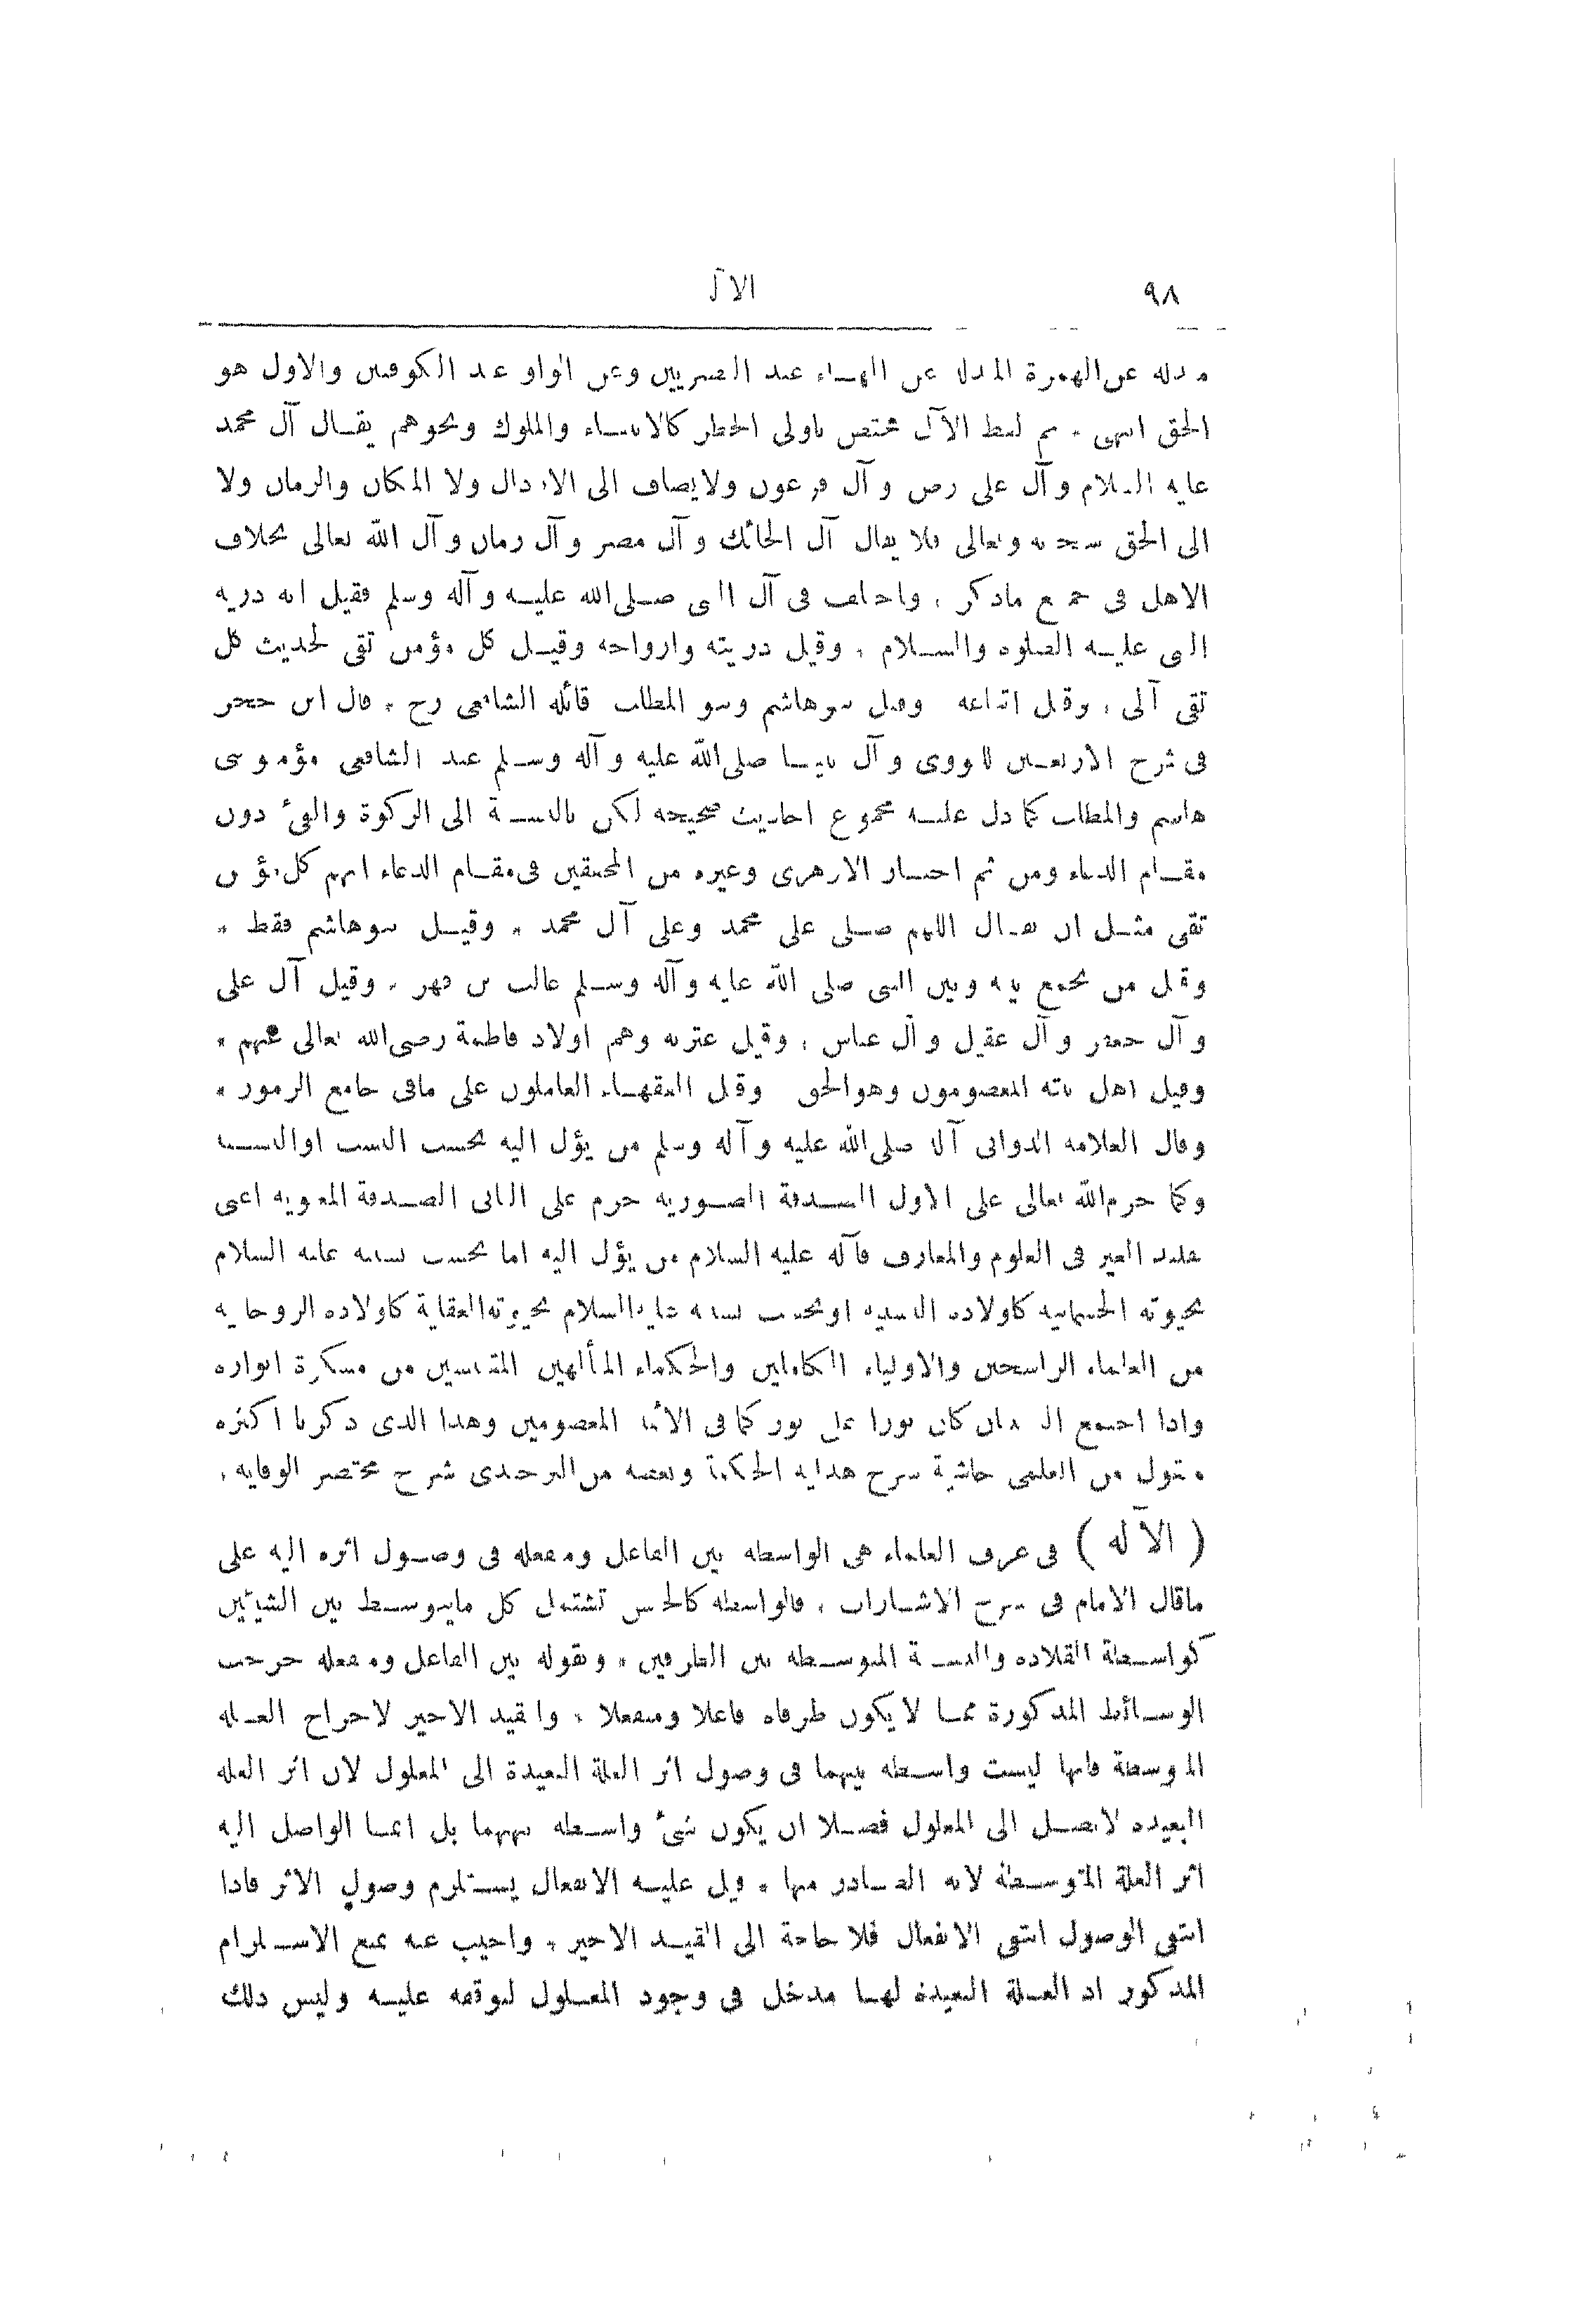 ٩٨ الآل
مبدلة عن الهمزة المبدلة عن الهاء عند البصريين وعن الواو عند الكوفيين والاول هو
الحق انتهى . ثم لفظ الآل مختص باولى الخطر كالانبياء والملوك ونحوهم يقال آل محمد
عليه السلام وآل على رض وآل فرعون ولايضاف الى الارذال ولا المكان والزمان ولا
الى الحق سبحانه وتعالى فلا يقال آل الحائك وآل مصر وآل زمان وآل الله تعالى بخلاف
الاهل فى جميع ماذكر . واختلف فى آل النبى صلى الله عليه وآله وسلم فقيل انه ذرية
النبى عليه الصلوة والسلام . وقيل ذريته وازواجه وقيل كل مؤمن تقى لحديث كل
تقى آلى . وقيل اتباعه وقيل بنوهاشم وبنو المطلب قائله الشافعى رح . قال ابن حجر
فى شرح الاربعين للنووى وآل نبينا صلى الله عليه وآله وسلم عند الشافعى مؤمنوبنى
هاشم والمطلب كما دل عليه مجموع احاديث صحيحة لكن بالنسبة الى الزكوة والفئ دون
مقام الدعاء ومن ثم اختار الازهرى وغيره من المحققين فى مقام الدعاء انهم كل مؤمن
تقى مثل ان يقال اللهم صلى على محمد وعلى آل محمد . وقيل بنوهاشم فقط .
وقيل من يجمع بينه وبين النبى صلى الله عليه وآله وسلم غالب بن فهر . وقيل آل على
وآل جعفر وآل عقيل وآل عباس . وقيل عترته وهم اولاد فاطمة رضى الله تعالى عنهم .
وقيل اهل بيته المعصومون وهوالحق وقيل الفقهاء العاملون على مافى جامع الرموز .
وقال العلامة الدوانى آله صلى الله عليه وآله وسلم من يؤل اليه بحسب النسب اوالنسبة
وكما حرم الله تعالى على الاول الصدقة الصورية حرم على الثانى الصدقة المعنوية اعنى
تقليد الغير فى العلوم والمعارف فآله عليه السلام من يؤل اليه اما بحسب نسبته عليه السلام
بحيوته الجسمانية كاولاده النسبية اوبحسب نسبته عليه السلام بحيوته العقلية كاولاده الروحانية
من العلماء الراسخين والاولياء الكاملين والحكماء المتألهين المقتبسين من مشكوة انواره
واذا اجتمع النسبتان كان نورا على نور كما فى الائمة المعصومين وهذا الذى ذكرنا اكثره
منقول من العلمى حاشية شرح هداية الحكمة وبعضه من البرجندى شرح مختصر الوقاية .
( الآلة ) فى عرف العلماء هى الواسطة بين الفاعل ومنفعله فى وصول اثره اليه على
ماقال الامام فى شرح الاشارات . فالواسطة كالجنس تشتمل كل مايتوسط بين الشيئين
كواسطة القلادة والنسبة المتوسطة بين الطرفين . وبقوله بين الفاعل ومنفعله خرجت
الوسائط المذكورة مما لا يكون طرفاه فاعلا ومنفعلا . والقيد الاخير لاخراج العلة
المتوسطة فانها ليست واسطة بينهما فى وصول اثر العلة البعيدة الى المعلول لان اثر العلة
البعيدة لايصل الى المعلول فضلا ان يكون شئ واسطة بينهما بل انما الواصل اليه
اثر العلة المتوسطة لانه الصادر منها . قيل عليه الانفعال يستلزم وصول الاثر فاذا
انتفى الوصول انتفى الانفعال فلا حاجة الى القيد الاخير . واجيب عنه بمنع الاستلزام
المذكور اذ العلة البعيدة لها مدخل فى وجود المعلول لتوقفه عليه وليس ذلك